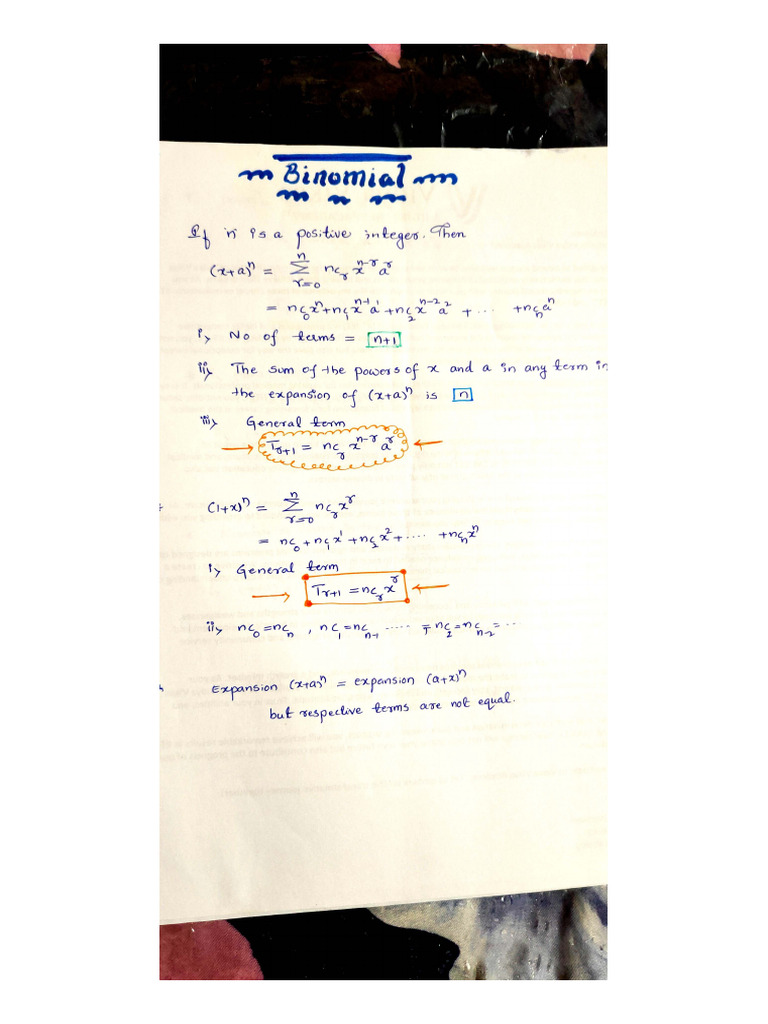 Binomial
If 'n' is a positive integer. Then
(x+a)ⁿ = Σ_{r=0}^{n} nC_r x^{n-r} a^r
= nC₀xⁿ + nC₁x^{n-1}a¹ + nC₂x^{n-2}a² + ···· + nCₙaⁿ
i) No of terms = n+1
ii) The sum of the powers of x and a in any term in
the expansion of (x+a)ⁿ is n
iii) General term
T_{r+1} = nC_r x^{n-r} a^r
(1+x)ⁿ = Σ_{r=0}^{n} nC_r x^r
= nC₀ + nC₁x¹ + nC₂x² + ···· + nCₙxⁿ
i) General term
T_{r+1} = nC_r x^r
ii) nC₀ = nCₙ , nC₁ = nC_{n-1} ····· = nC₂ = nC_{n-2} = ···
Expansion (x+a)ⁿ = expansion (a+x)ⁿ
but respective terms are not equal.